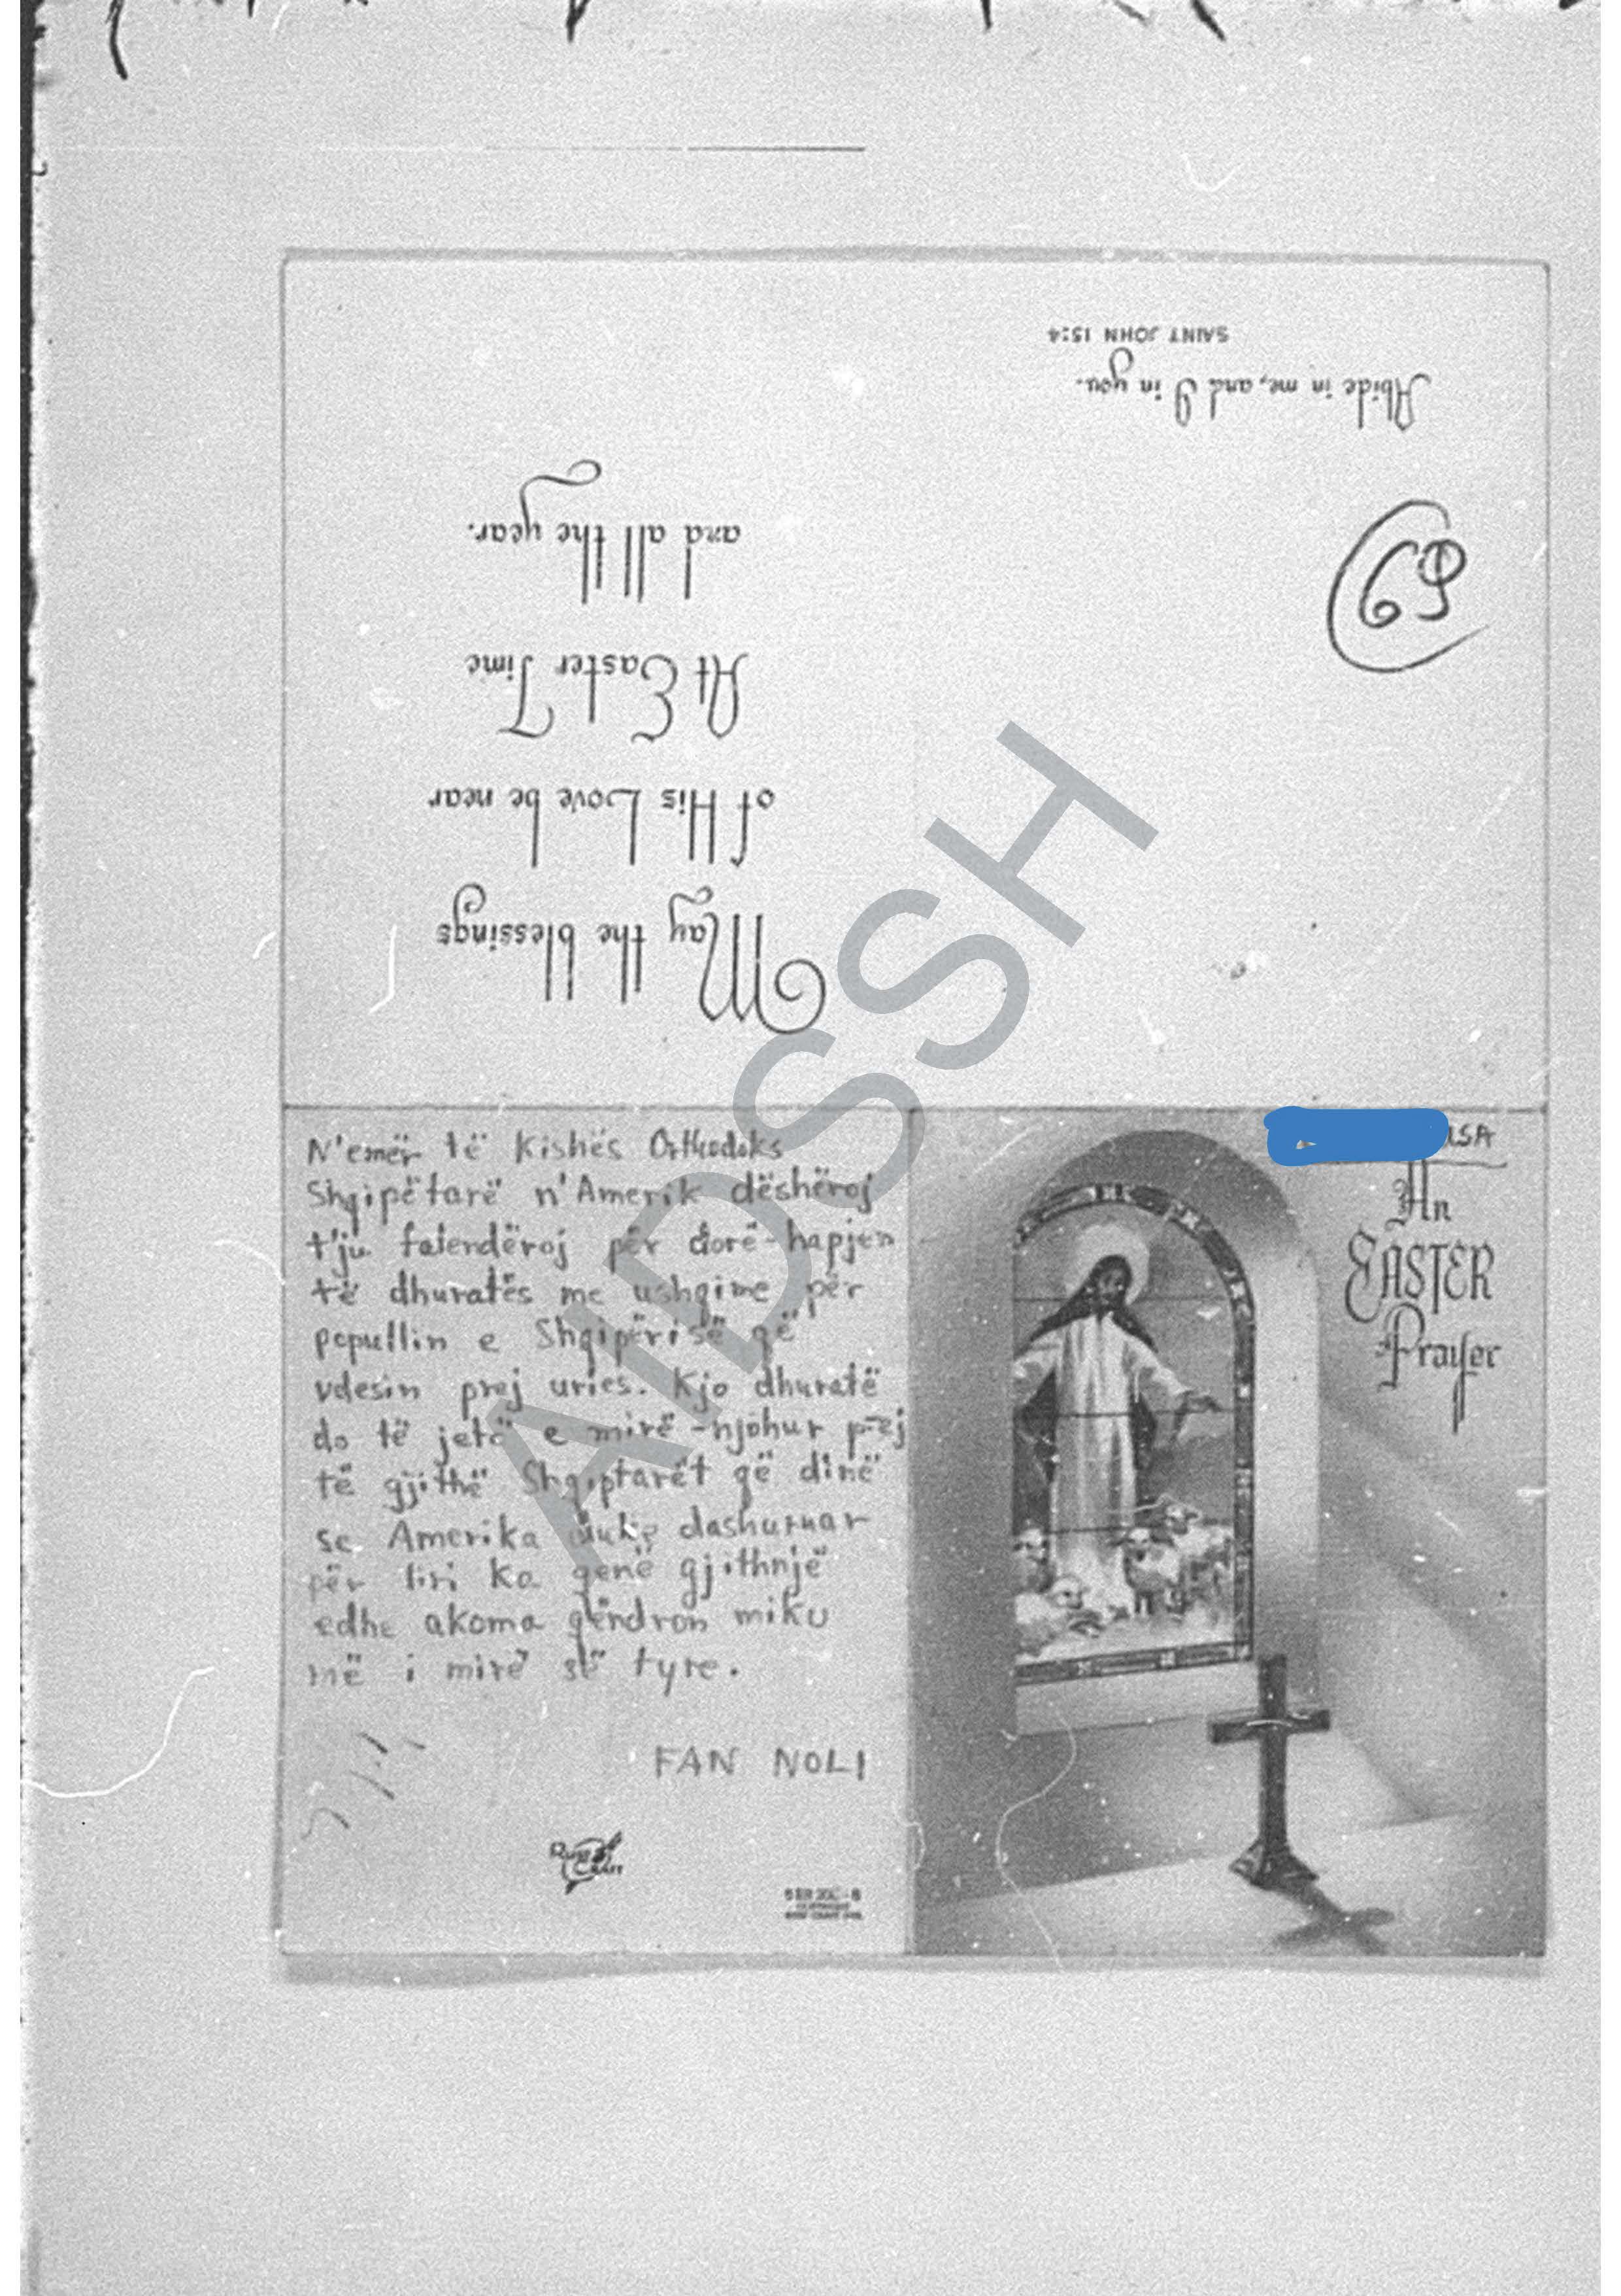 SAINT JOHN 15:4
Abide in me, and I in you.
69
May the blessings
of His Love be near
At Easter Time
and all the year.
N'emër të Kishës Orthodoks
Shqipëtarë n'Amerik dëshëroj
t'ju falenderoj për dorë-hapjen
të dhuratës me ushqime për
popullin e Shqipërisë që
vdesin prej uries. Kjo dhuratë
do të jetë e mirë-njohur prej
të gjithë Shqiptarët që dinë
se Amerika duke dashuruar
për liri ka qenë gjithnjë
edhe akoma qëndron miku
më i mirë së tyre.
FAN NOLI
RUST CRAFT
An
EASTER
Prayer
AIDSSH